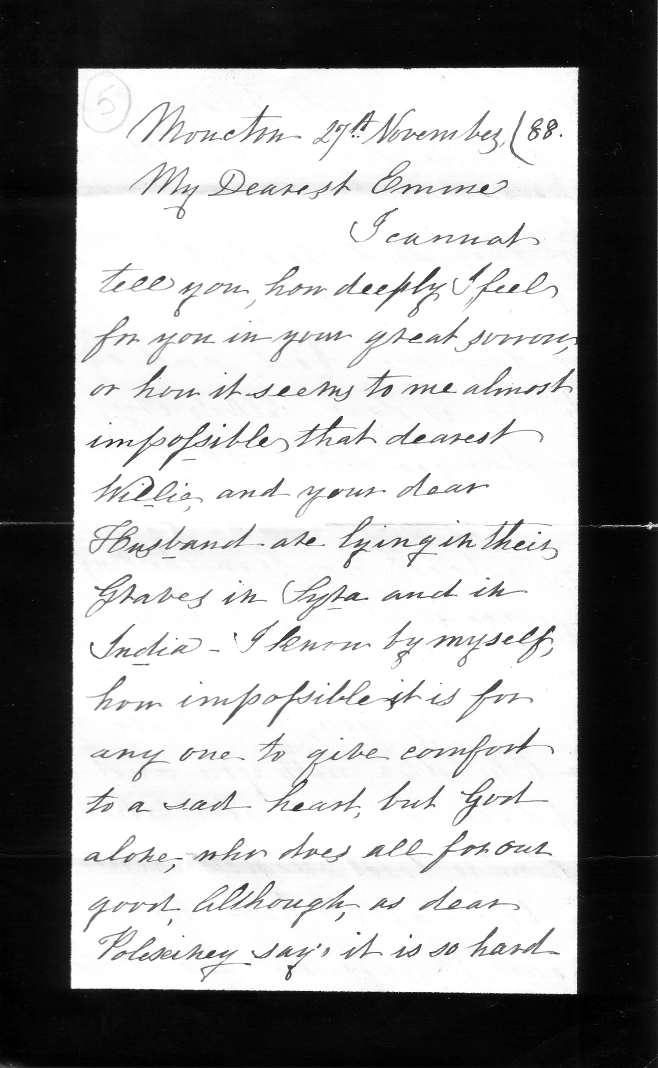 5
Moncton 27th November, (88.
My Dearest Emme
I cannot
tell you, how deeply I feel
for you in your great sorrow,
or how it seems to me almost
impossible, that dearest
Willie, and your dear
Husband are lying in their
Graves in Syra and in
India - I know by myself,
how impossible it is for
any one to give comfort
to a sad heart, but God
alone, who does all for our
good, Although, as dear
say's it is so hard